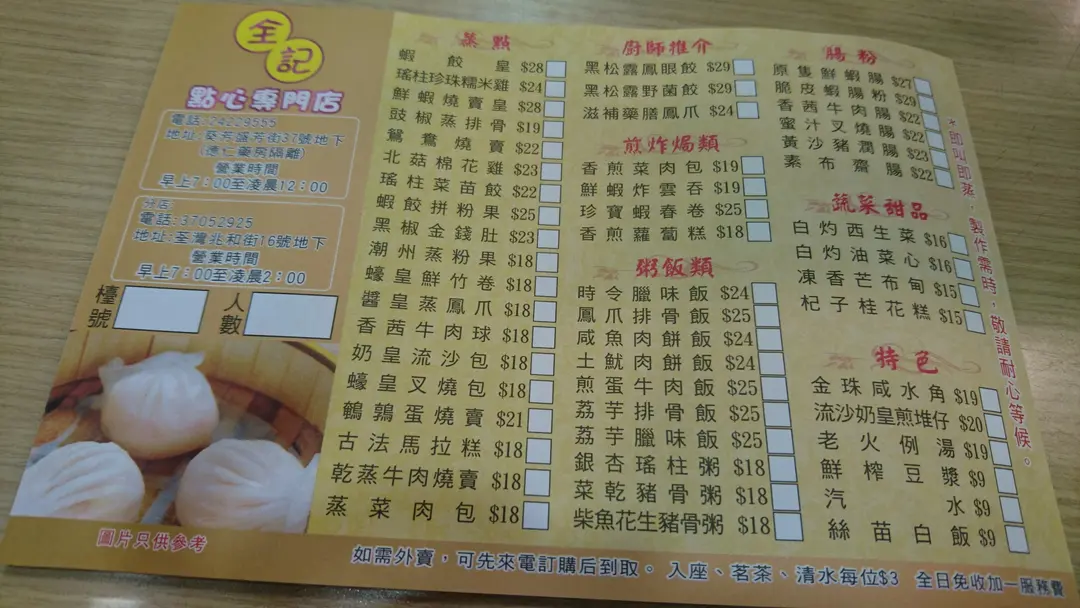 全記
點心專門店
電話:24229555
地址:葵芳盛芳街37號地下
(德仁藥房隔離)
營業時間
早上7:00至凌晨12:00
分店:
電話:37052925
地址:荃灣兆和街16號地下
營業時間
早上7:00至凌晨2:00
檯號
人數
圖片只供參考
蒸點
蝦餃皇 $28
瑤柱珍珠糯米雞 $24
鮮蝦燒賣皇 $28
豉椒蒸排骨 $19
鴛鴦燒賣 $22
北菇棉花雞 $23
瑤柱菜苗餃 $22
蝦餃拼粉果 $25
黑椒金錢肚 $23
潮州蒸粉果 $18
蠔皇鮮竹卷 $18
醬皇蒸鳳爪 $18
香茜牛肉球 $18
奶皇流沙包 $18
蠔皇叉燒包 $18
鵪鶉蛋燒賣 $21
古法馬拉糕 $18
乾蒸牛肉燒賣 $18
蒸菜肉包 $18
廚師推介
黑松露鳳眼餃 $29
黑松露野菌餃 $29
滋補藥膳鳳爪 $24
煎炸焗類
香煎菜肉包 $19
鮮蝦炸雲吞 $19
珍寶蝦春卷 $25
香煎蘿蔔糕 $18
粥飯類
時令臘味飯 $24
鳳爪排骨飯 $25
咸魚肉餅飯 $24
土魷肉餅飯 $24
煎蛋牛肉飯 $25
荔芋排骨飯 $25
荔芋臘味飯 $25
銀杏瑤柱粥 $18
菜乾豬骨粥 $18
柴魚花生豬骨粥 $18
腸粉
原隻鮮蝦腸 $27
脆皮蝦腸粉 $29
香茜牛肉腸 $22
蜜汁叉燒腸 $22
黃沙豬潤腸 $23
素布齋腸 $22
蔬菜甜品
白灼西生菜 $16
白灼油菜心 $16
凍香芒布甸 $15
杞子桂花糕 $15
特色
金珠咸水角 $19
流沙奶皇煎堆仔 $20
老火例湯 $19
鮮榨豆漿 $9
汽水 $9
絲苗白飯 $9
*即叫即蒸,製作需時,敬請耐心等候。
如需外賣,可先來電訂購后到取。 入座、茗茶、清水每位$3 全日免收加一服務費